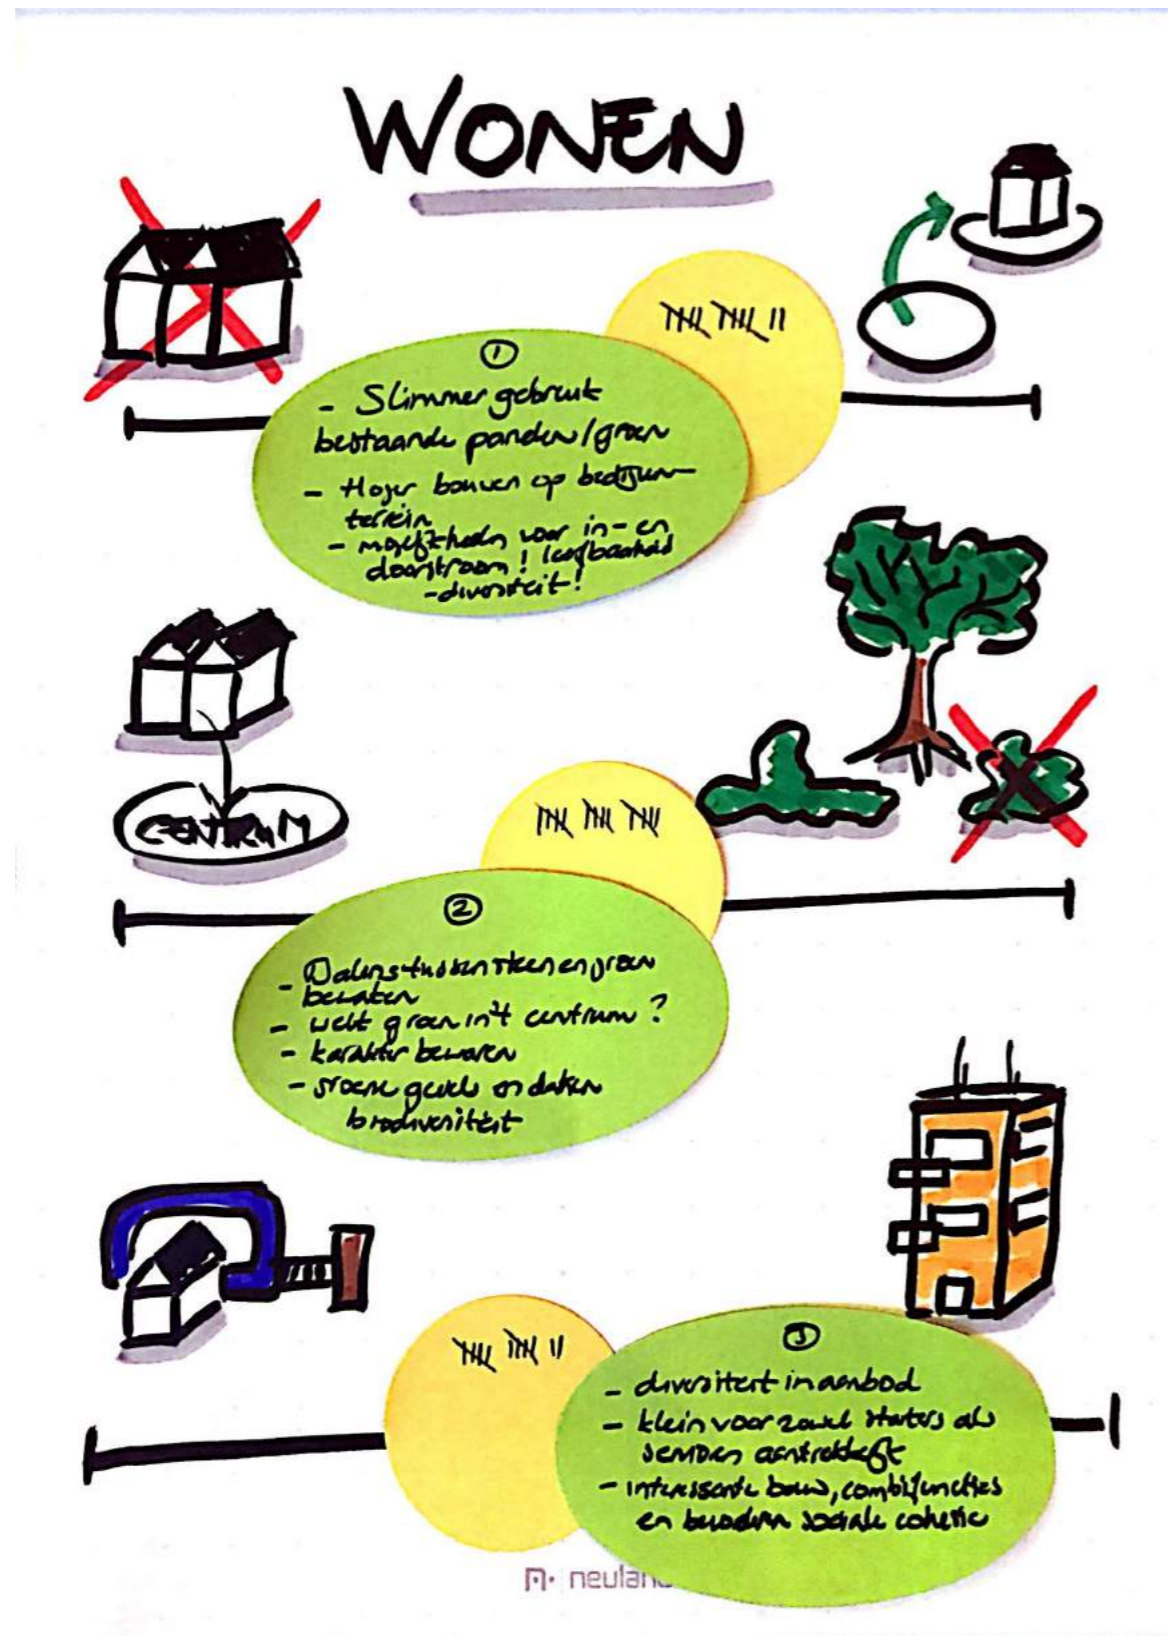 WONEN
①
- Slimmer gebruik
bestaande panden/groen
- Hoger bouwen op bedrijven-
terrein
- mogelijkheden voor in- en
doorstroom! leefbaarheid
- diversiteit!
CENTRUM
②
- Balans tussen steen en groen
bewaken
- welk groen in 't centrum?
- karakter bewaren
- groene gevels en daken
biodiversiteit
③
- diversiteit in aanbod
- klein voor zowel starters als
senioren aantrekkelijk
- interessante bouw, combifuncties
en sociale cohesie
neuland